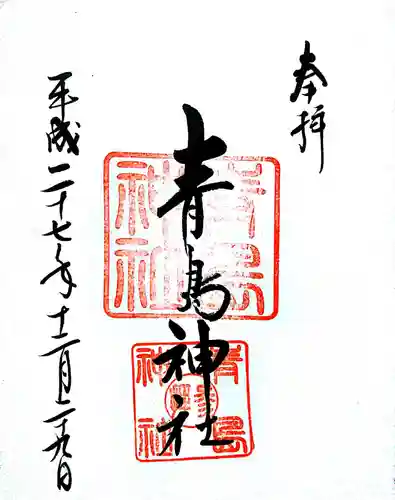 奉拝
青島神社
平成二十七年十二月二十九日
青島神社